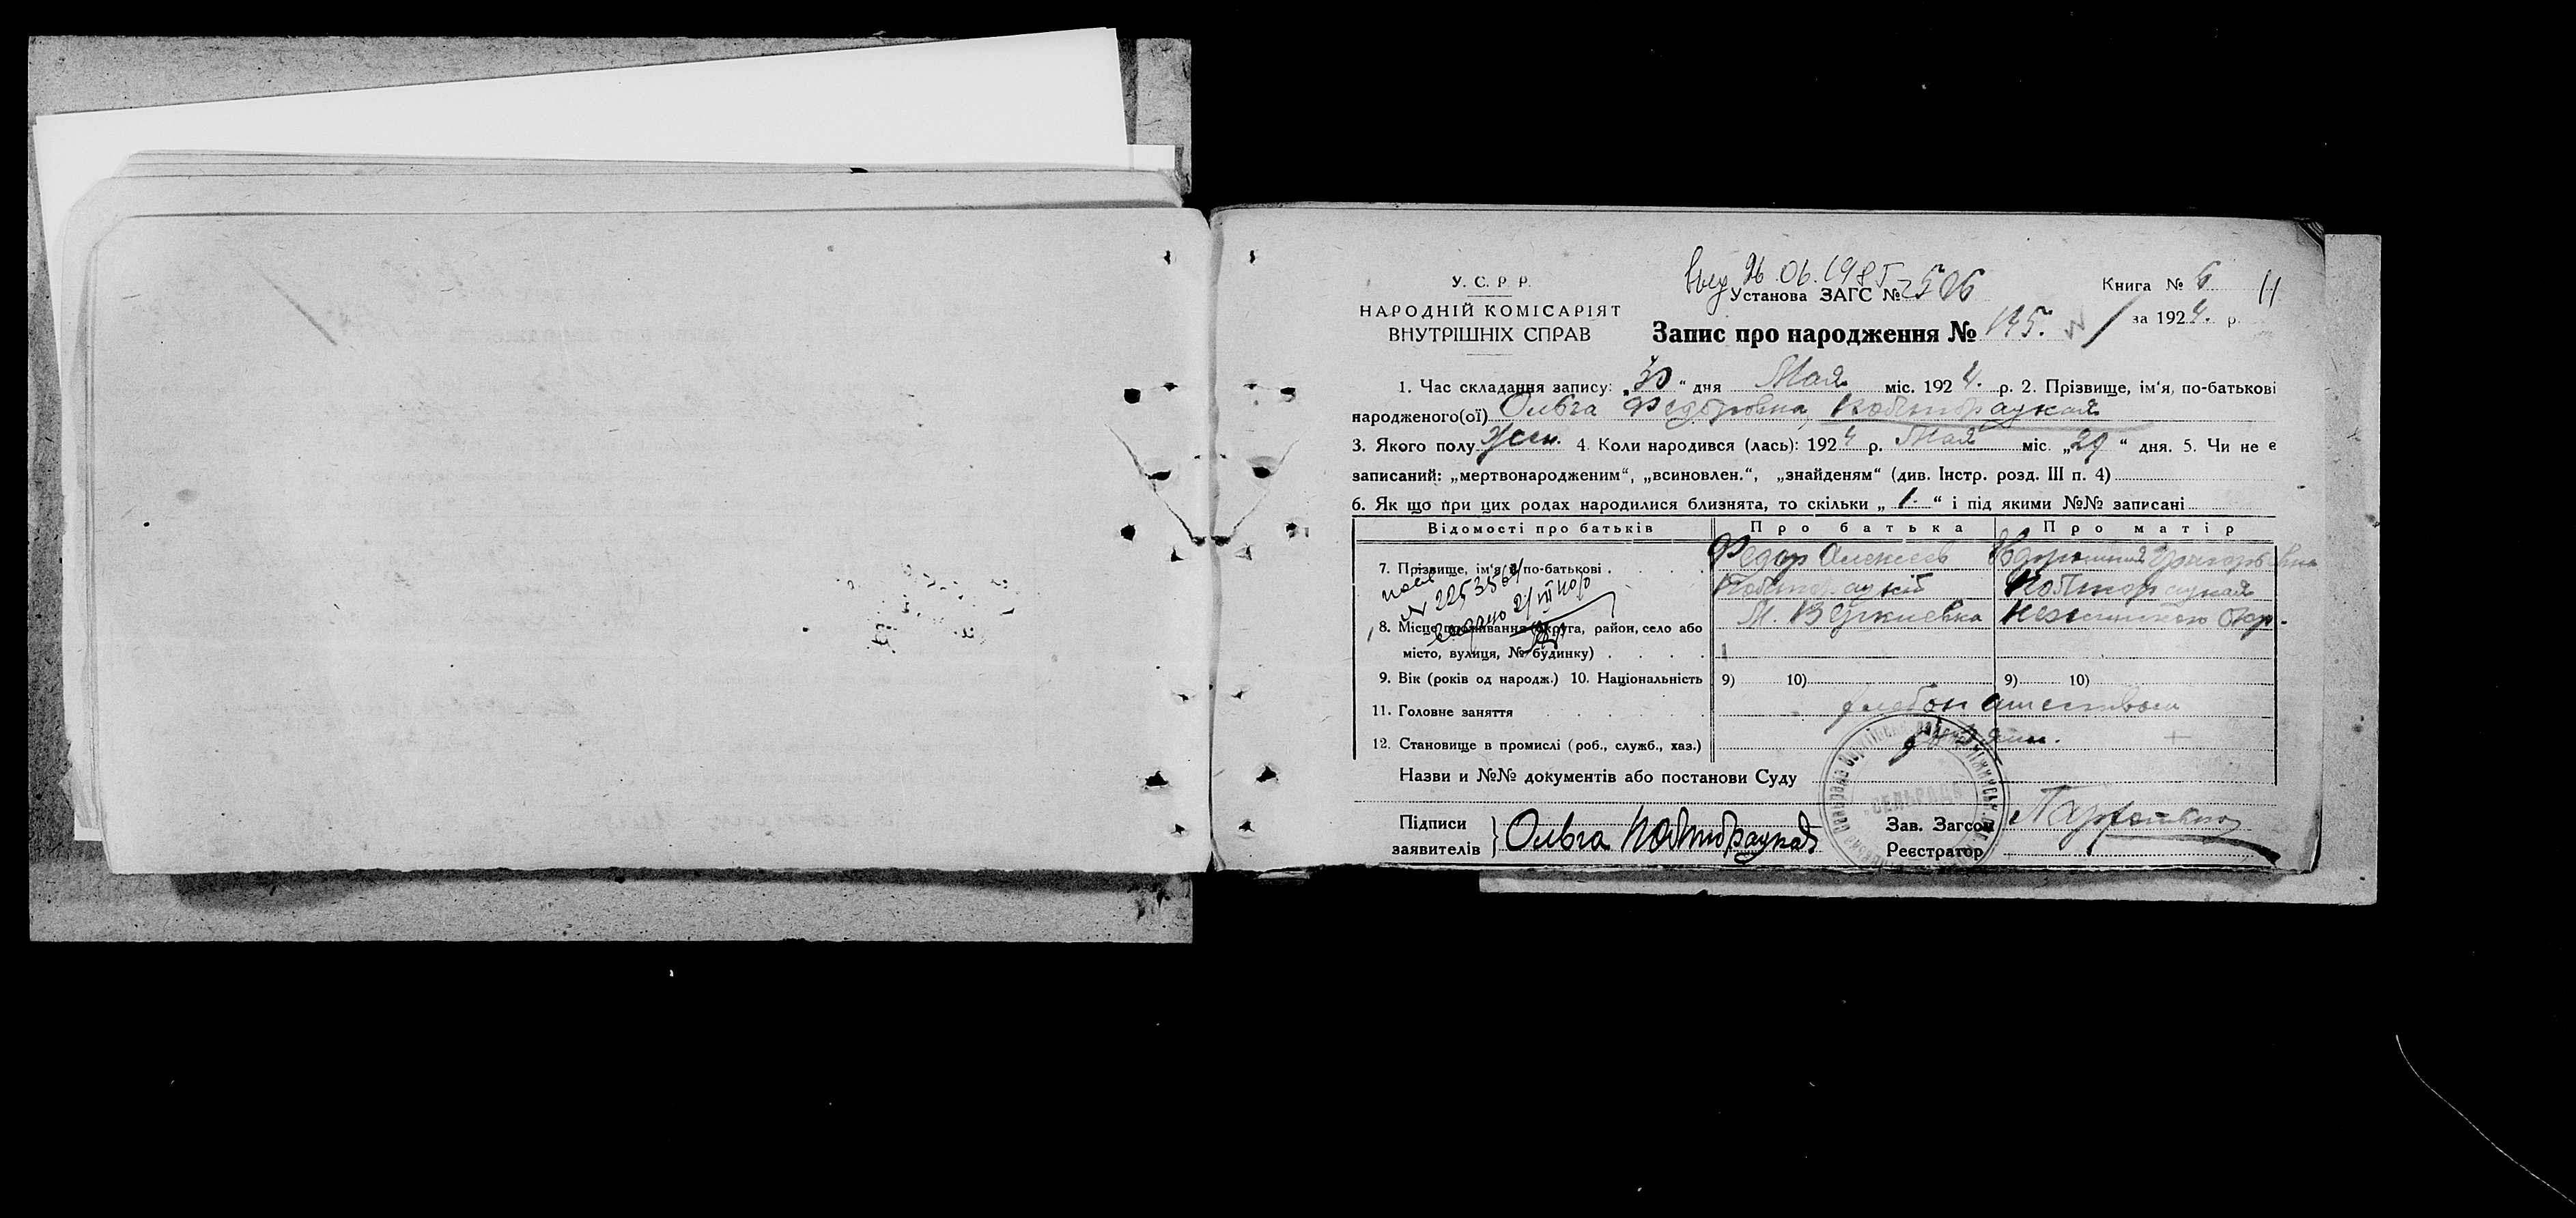 У. С. Р. Р.
НАРОДНІЙ КОМІСАРІЯТ
ВНУТРІШНІХ СПРАВ
26.06.1985
Установа ЗАГС № 2506
Запис про народження № 145.
Книга № 6
11
за 1924. р.
1. Час складання запису: „30“ дня Мая міс. 1924. р. 2. Прізвище, ім‘я, по-батькові
народженого(ої) Ольга Федоровна,
3. Якого полу жен. 4. Коли народився (лась): 1924 р. Мая міс. „29“ дня. 5. Чи не є
записаний: „мертвонародженим“, „всиновлен.“, „знайденям“ (див. Інстр. розд. III п. 4)
6. Як що при цих родах народилися близнята, то скільки „1.“ і під якими №№ записані
Відомості про батьків Про батька Про матір
7. Прізвище, ім‘я, по-батькові Федор Алексеев
8. Місце проживання (округа, район, село або
М. Веркиевка Нежинского Окр.
місто, вулиця, № будинку)
9. Вік (років од народж.) 10. Національність 9) 10) 9) 10)
11. Головне заняття хлебопашеством
12. Становище в промислі (роб., служб., хаз.)
Назви и №№ документів або постанови Суду
Підписи
заявителів } Ольга
Зав. Загсом
Реєстратор
СЕЛЬРАДА